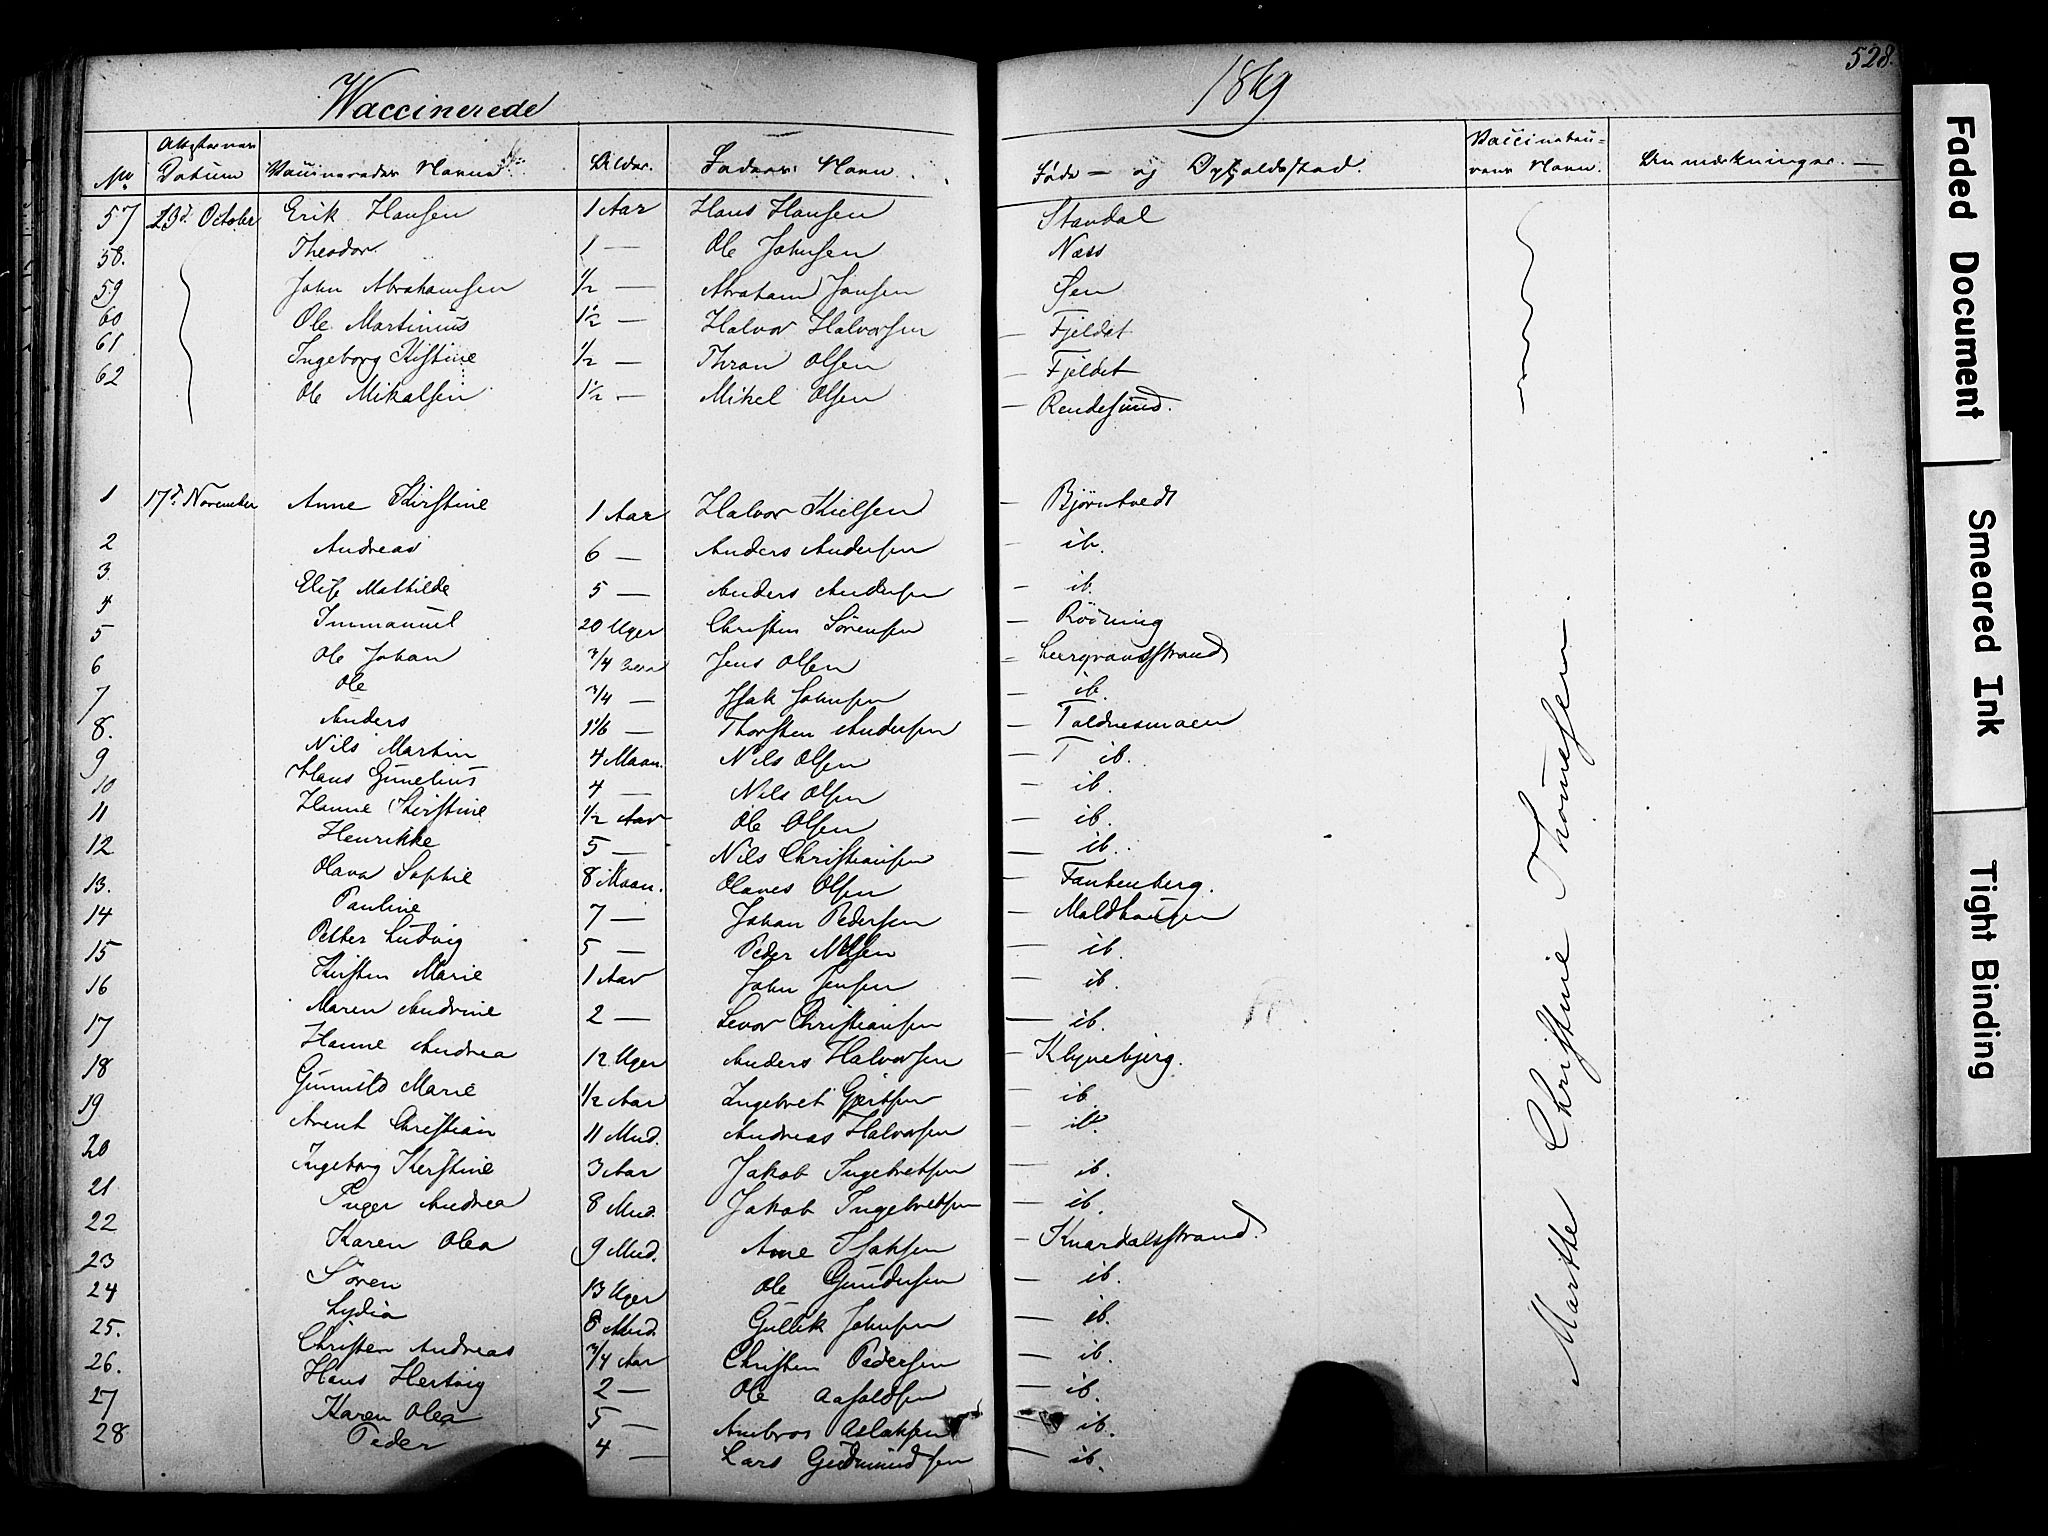 Waccinerede
1869
528.
No. Attesternes Datum Vaccineredes Navne Alder. Faderens Navn Føde- og Opholdsstad. Vaccinateurens Navn. Anmærkninger.
57 23d. October Erik Hansen 1 Aar Hans Hansen Standal
58. Theodor 1 — Ole Johnsen Næss
59 John Abrahamsen 1/2 — Abraham Jansen
60 Ole Martinius 1 1/2 — Halvor Halvorsen — Fjeldet
61 Ingeborg Kistine 1/2 — Thron Olsen — Fjeldet
62 Ole Mikalsen 1 1/2 — Mikel Olsen — Rendesund.
1 17d. November Anne Kirstine 1 Aar Halvor Kielsen — Bjørntvedt
2 Andreas 6 — Anders Andersen — ib.
3 Elise Mathilde 5 — Anders Andersen — ib.
4 Immanuel 20 Uger Christen Sörensen — Röðning
5 Ole Johan 3/4 Aar Jens Olsen — Leergravsstrand
6 Ole 3/4 — Isak Johnsen — ib.
7 Anders 1 1/6 — Thorsten Andersen — Toldnesmoen
8. Nils Martin 4 Maan. Nils Olsen — ib.
9 Hans Gunelius 4 — Nils Olsen — ib.
10 Hanne Kirstine 1/2 Aar Ole Olsen — ib.
11 Henrikke 5 — Nils Christiansen — ib.
12 Olava Sophie 8 Maan. Olaves Olsen — Fantenberg.
13. Pauline 7 — Johan Pedersen — Moldhaugen
14 Petter Ludvig 5 — Peder Nilsen — ib.
15 Kirsten Marie 1 Aar John Jensen — ib.
16 Maren Andrine 2 — Levor Christiansen — ib.
17 Hanne Andrea 12 Uger Anders Halvorsen — Klynebjerg.
18 Gunnild Marie 1/2 Aar Ingebret Gjertsen — ib.
19 Arent Christian 11 Mnd. Andreas Halvorsen — ib.
20 Ingeborg Kerstine 3 Aar Jakob Ingebretsen — ib.
21 Inger Andrea 8 Mnd. Jakob Ingebretsen — ib.
22 Karen Olea 9 Mnd. Arne Isaksen — Knardalsstrand.
23 Sören 13 Uger Ole Gundersen — ib.
24 Lydia 8 Mnd. Gullik Johnsen — ib.
25. Christen Andreas 3/4 Aar Christen Pedersen — ib.
26. Hans Hertvig 2 — Ole Aasoldsen — ib.
27 Karen Olea 5 — Ambros Aslaksen — ib.
28 Peder 4 — Lars Gudmundsen — ib.
Marthe Christine Thomesen
Faded Document
Smeared Ink
Tight Binding